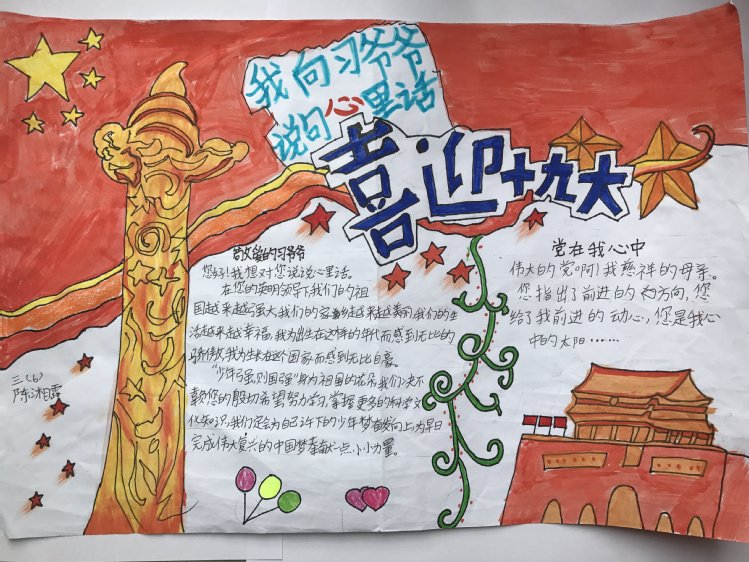 我向习爷爷
说句心里话
喜迎十九大
敬爱的习爷爷
您好!我想对您说说心里话。
在您的英明领导下我们的祖
国越来越强大,我们的家乡越来越美丽,我们的生
活越来越幸福,我为出生在这样的年代而感到无比的
骄傲,我为生长在这个国家而感到无比自豪。
"少年强,则国强"身为祖国的花朵,我们决不
辜负您的殷切希望努力学习,掌握更多的科学文
化知识,我们定会为自己许下的少年梦奋发向上,为早日
完成伟大复兴的中国梦奉献一点小小力量。
党在我心中
伟大的党啊!我慈祥的母亲。
您指出了前进的方向,您
给了我前进的动心,您是我心
中的太阳……
三(6)
陈湘露